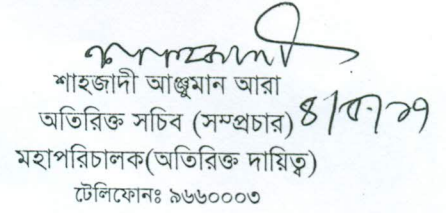 শাহজাদী আঞ্জুমান আরা
অতিরিক্ত সচিব (সম্প্রচার)
মহাপরিচালক(অতিরিক্ত দায়িত্ব)
টেলিফোনঃ ৯৬৬০০০৩